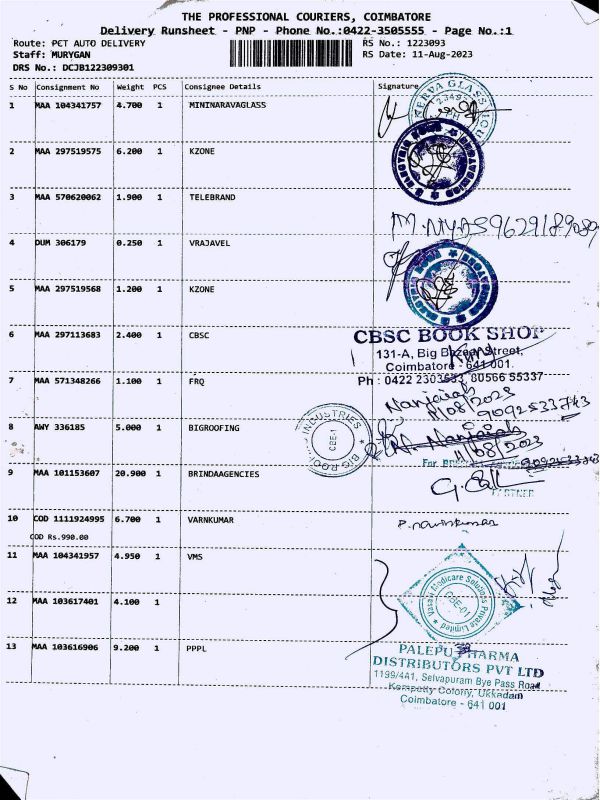 THE PROFESSIONAL COURIERS, COIMBATORE
Delivery Runsheet - PNP - Phone No.:0422-3505555 - Page No.:1
Route: PCT AUTO DELIVERY
RS No.: 1223093
Staff: MURYGAN
RS Date: 11-Aug-2023
DRS No.: DCJB122309301
S No Consignment No Weight PCS Consignee Details Signature
1 MAA 104341757 4.700 1 MININARAVAGLASS
2 MAA 297519575 6.200 1 KZONE
3 MAA 570620062 1.900 1 TELEBRAND
9629189089
4 DUM 306179 0.250 1 VRAJAVEL
5 MAA 297519568 1.200 1 KZONE
6 MAA 297113683 2.400 1 CBSC
CBSC BOOK SHOP
131-A, Big Bazaar Street,
Coimbatore - 641 001.
Ph : 0422 2303633, 80566 55337
7 MAA 571348266 1.100 1 FRQ
Nanjaiah
11/08/2023
9092533743
8 AWY 336185 5.000 1 BIGROOFING
BIG ROOFING INDUSTRIES
CBE-1
Nanjaiah
11/08/2023
9092533743
9 MAA 101153607 20.900 1 BRINDAAGENCIES
PARTNER
10 COD 1111924995 6.700 1 VARNKUMAR
P. navinkumar
COD Rs.990.00
11 MAA 104341957 4.950 1 VMS
Vasan Medicare Solutions Private Limited
CBE-01
12 MAA 103617401 4.100 1
13 MAA 103616906 9.200 1 PPPL
PALEPU PHARMA
DISTRIBUTORS PVT LTD
1199/4A1, Selvapuram Bye Pass Road
Kempatty Colony, Ukkadam
Coimbatore - 641 001